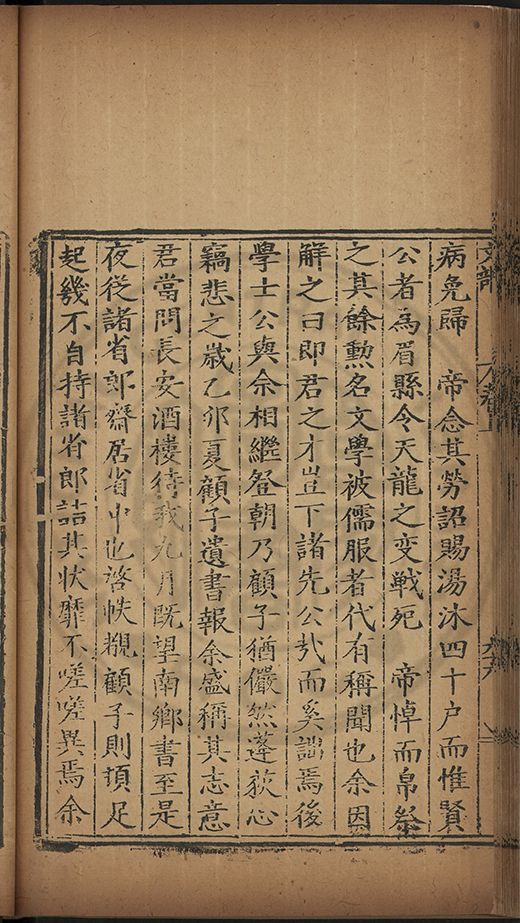 病免歸　帝念其勞詔賜湯沐四十户而惟賢
公者為眉縣令天龍之变戦死　帝悼而帛祭
之其餘勲名文學被儒服者代有稱聞也余因
解之曰即君之才豈下諸先公㢤而奚詘焉後
學士公與余相繼登朝乃顧子猶儼然蓬荻心
竊悲之歳乙夘夏顧子遺書報余盛稱其志意
君當問長安酒樓待我九月既望南鄉書至是
夜從諸省郎齋居省中也啓帙覩顧子則頂足
起幾不自持諸省郎詰其状靡不嗟嗟異焉余